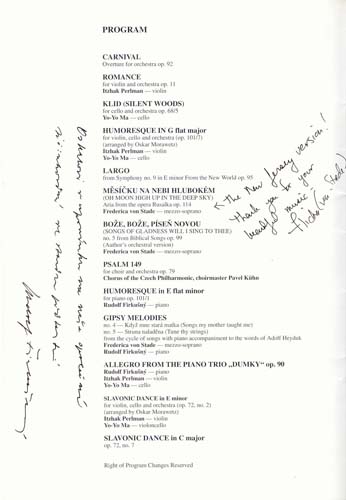 PROGRAM
CARNIVAL
Overture for orchestra op. 92
ROMANCE
for violin and orchestra op. 11
Itzhak Perlman — violin
KLID (SILENT WOODS)
for cello and orchestra op. 68/5
Yo-Yo Ma — cello
HUMORESQUE IN G flat major
for violin, cello and orchestra (op. 101/7)
(arranged by Oskar Morawetz)
Itzhak Perlman — violin
Yo-Yo Ma — cello
LARGO
from Symphony no. 9 in E minor From the New World op. 95
MĚSÍČKU NA NEBI HLUBOKÉM
(OH MOON HIGH UP IN THE DEEP SKY)
Aria from the opera Rusalka op. 114
Frederica von Stade — mezzo-soprano
BOŽE, BOŽE, PÍSEŇ NOVOU
(SONGS OF GLADNESS WILL I SING TO THEE)
no. 5 from Biblical Songs op. 99
(Author's orchestral version)
Frederica von Stade — mezzo-soprano
PSALM 149
for choir and orchestra op. 79
Chorus of the Czech Philharmonic, choirmaster Pavel Kühn
HUMORESQUE in E flat minor
for piano op. 101/1
Rudolf Firkušný — piano
GIPSY MELODIES
no. 4 — Když mne stará matka (Songs my mother taught me)
no. 5 — Struna naladěna (Tune thy strings)
from the cycle of songs with piano accompaniment to the words of Adolf Heyduk
Frederica von Stade — mezzo-soprano
Rudolf Firkušný — piano
ALLEGRO FROM THE PIANO TRIO „DUMKY“ op. 90
Rudolf Firkušný — piano
Itzhak Perlman — violin
Yo-Yo Ma — cello
SLAVONIC DANCE in E minor
for violin, cello and orchestra (op. 72, no. 2)
(arranged by Oskar Morawetz)
Itzhak Perlman — violin
Yo-Yo Ma — violoncello
SLAVONIC DANCE in C major
op. 72, no. 7
Right of Program Changes Reserved
The New Jersey version!
thank you for your
beautiful music